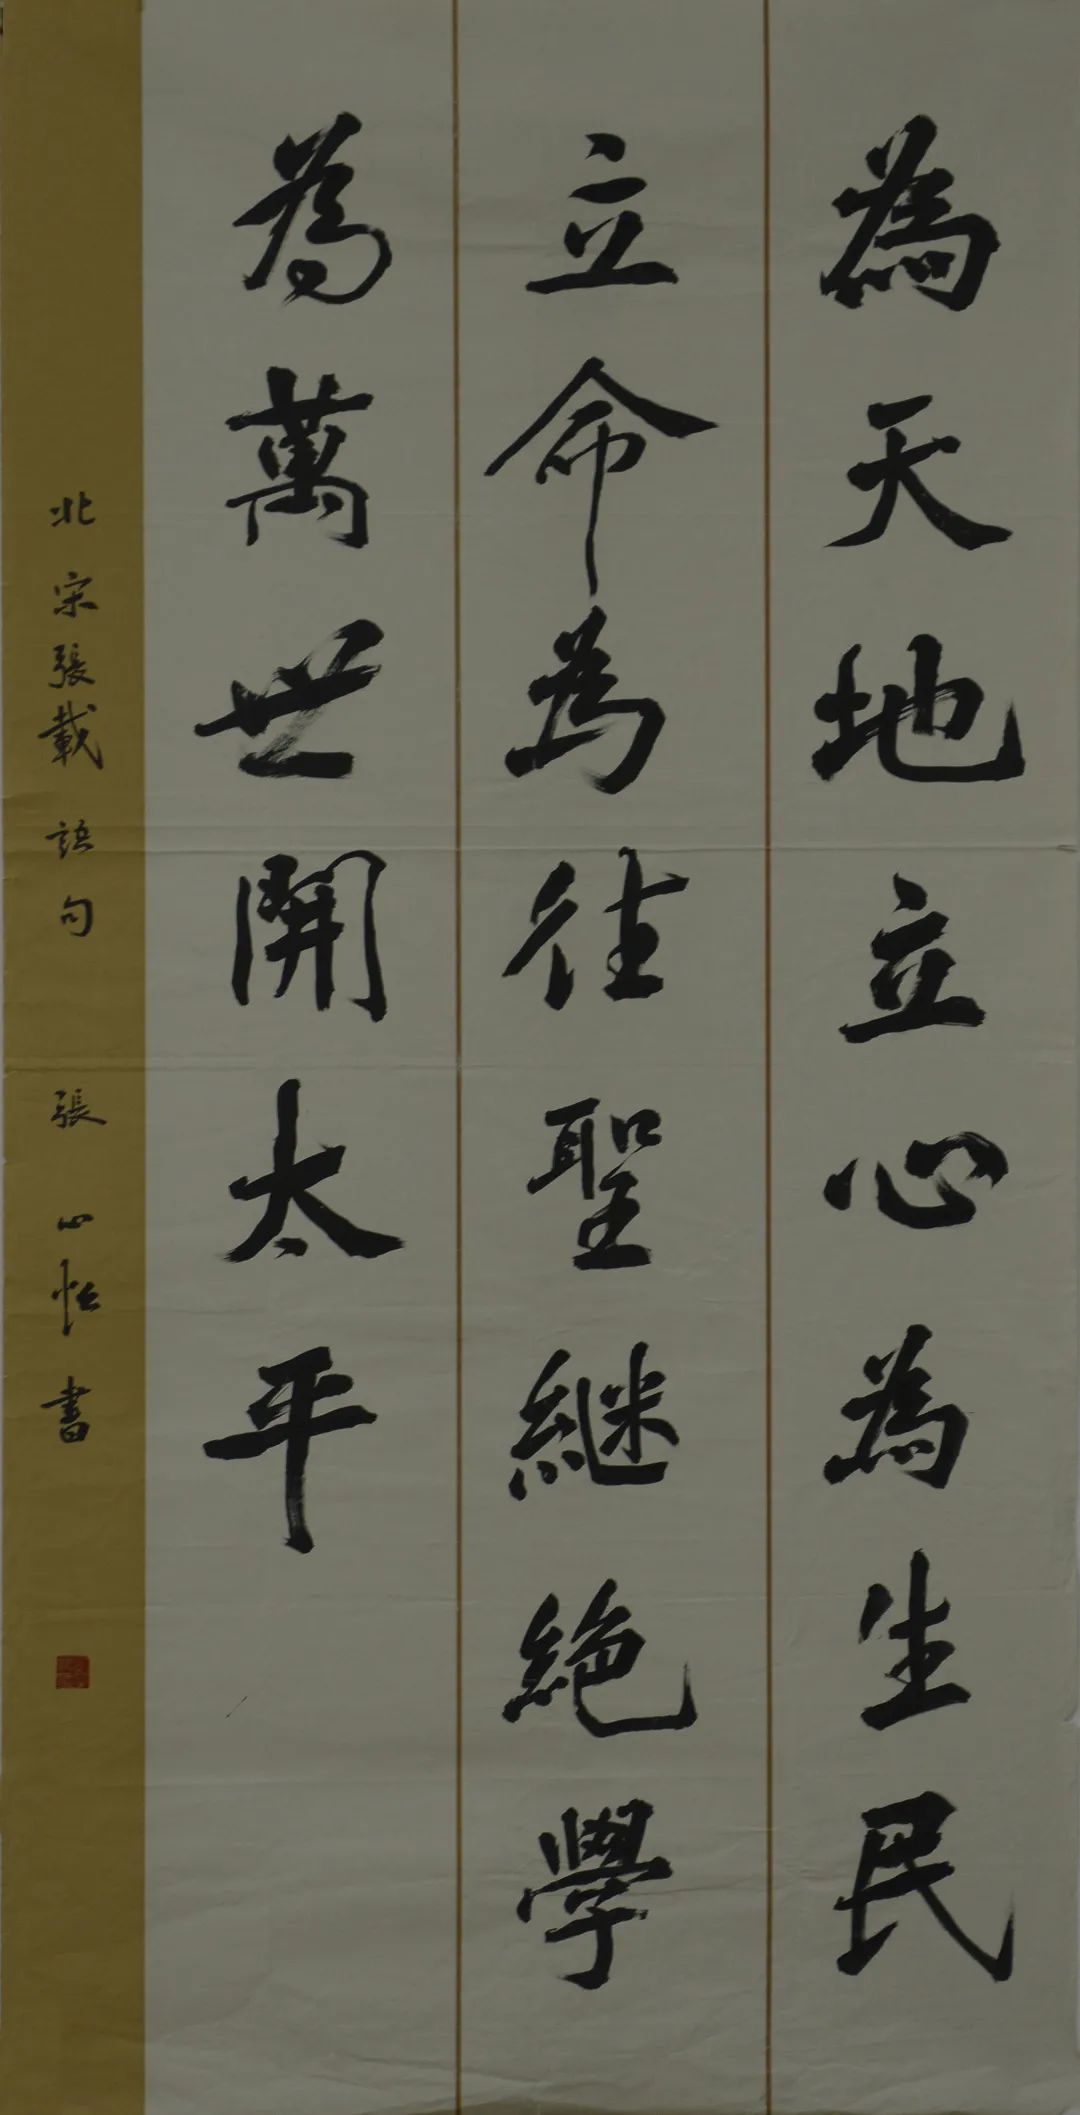 為天地立心為生民
立命為往聖継絕學
為萬世開太平
北宋張載語句 張心怡書